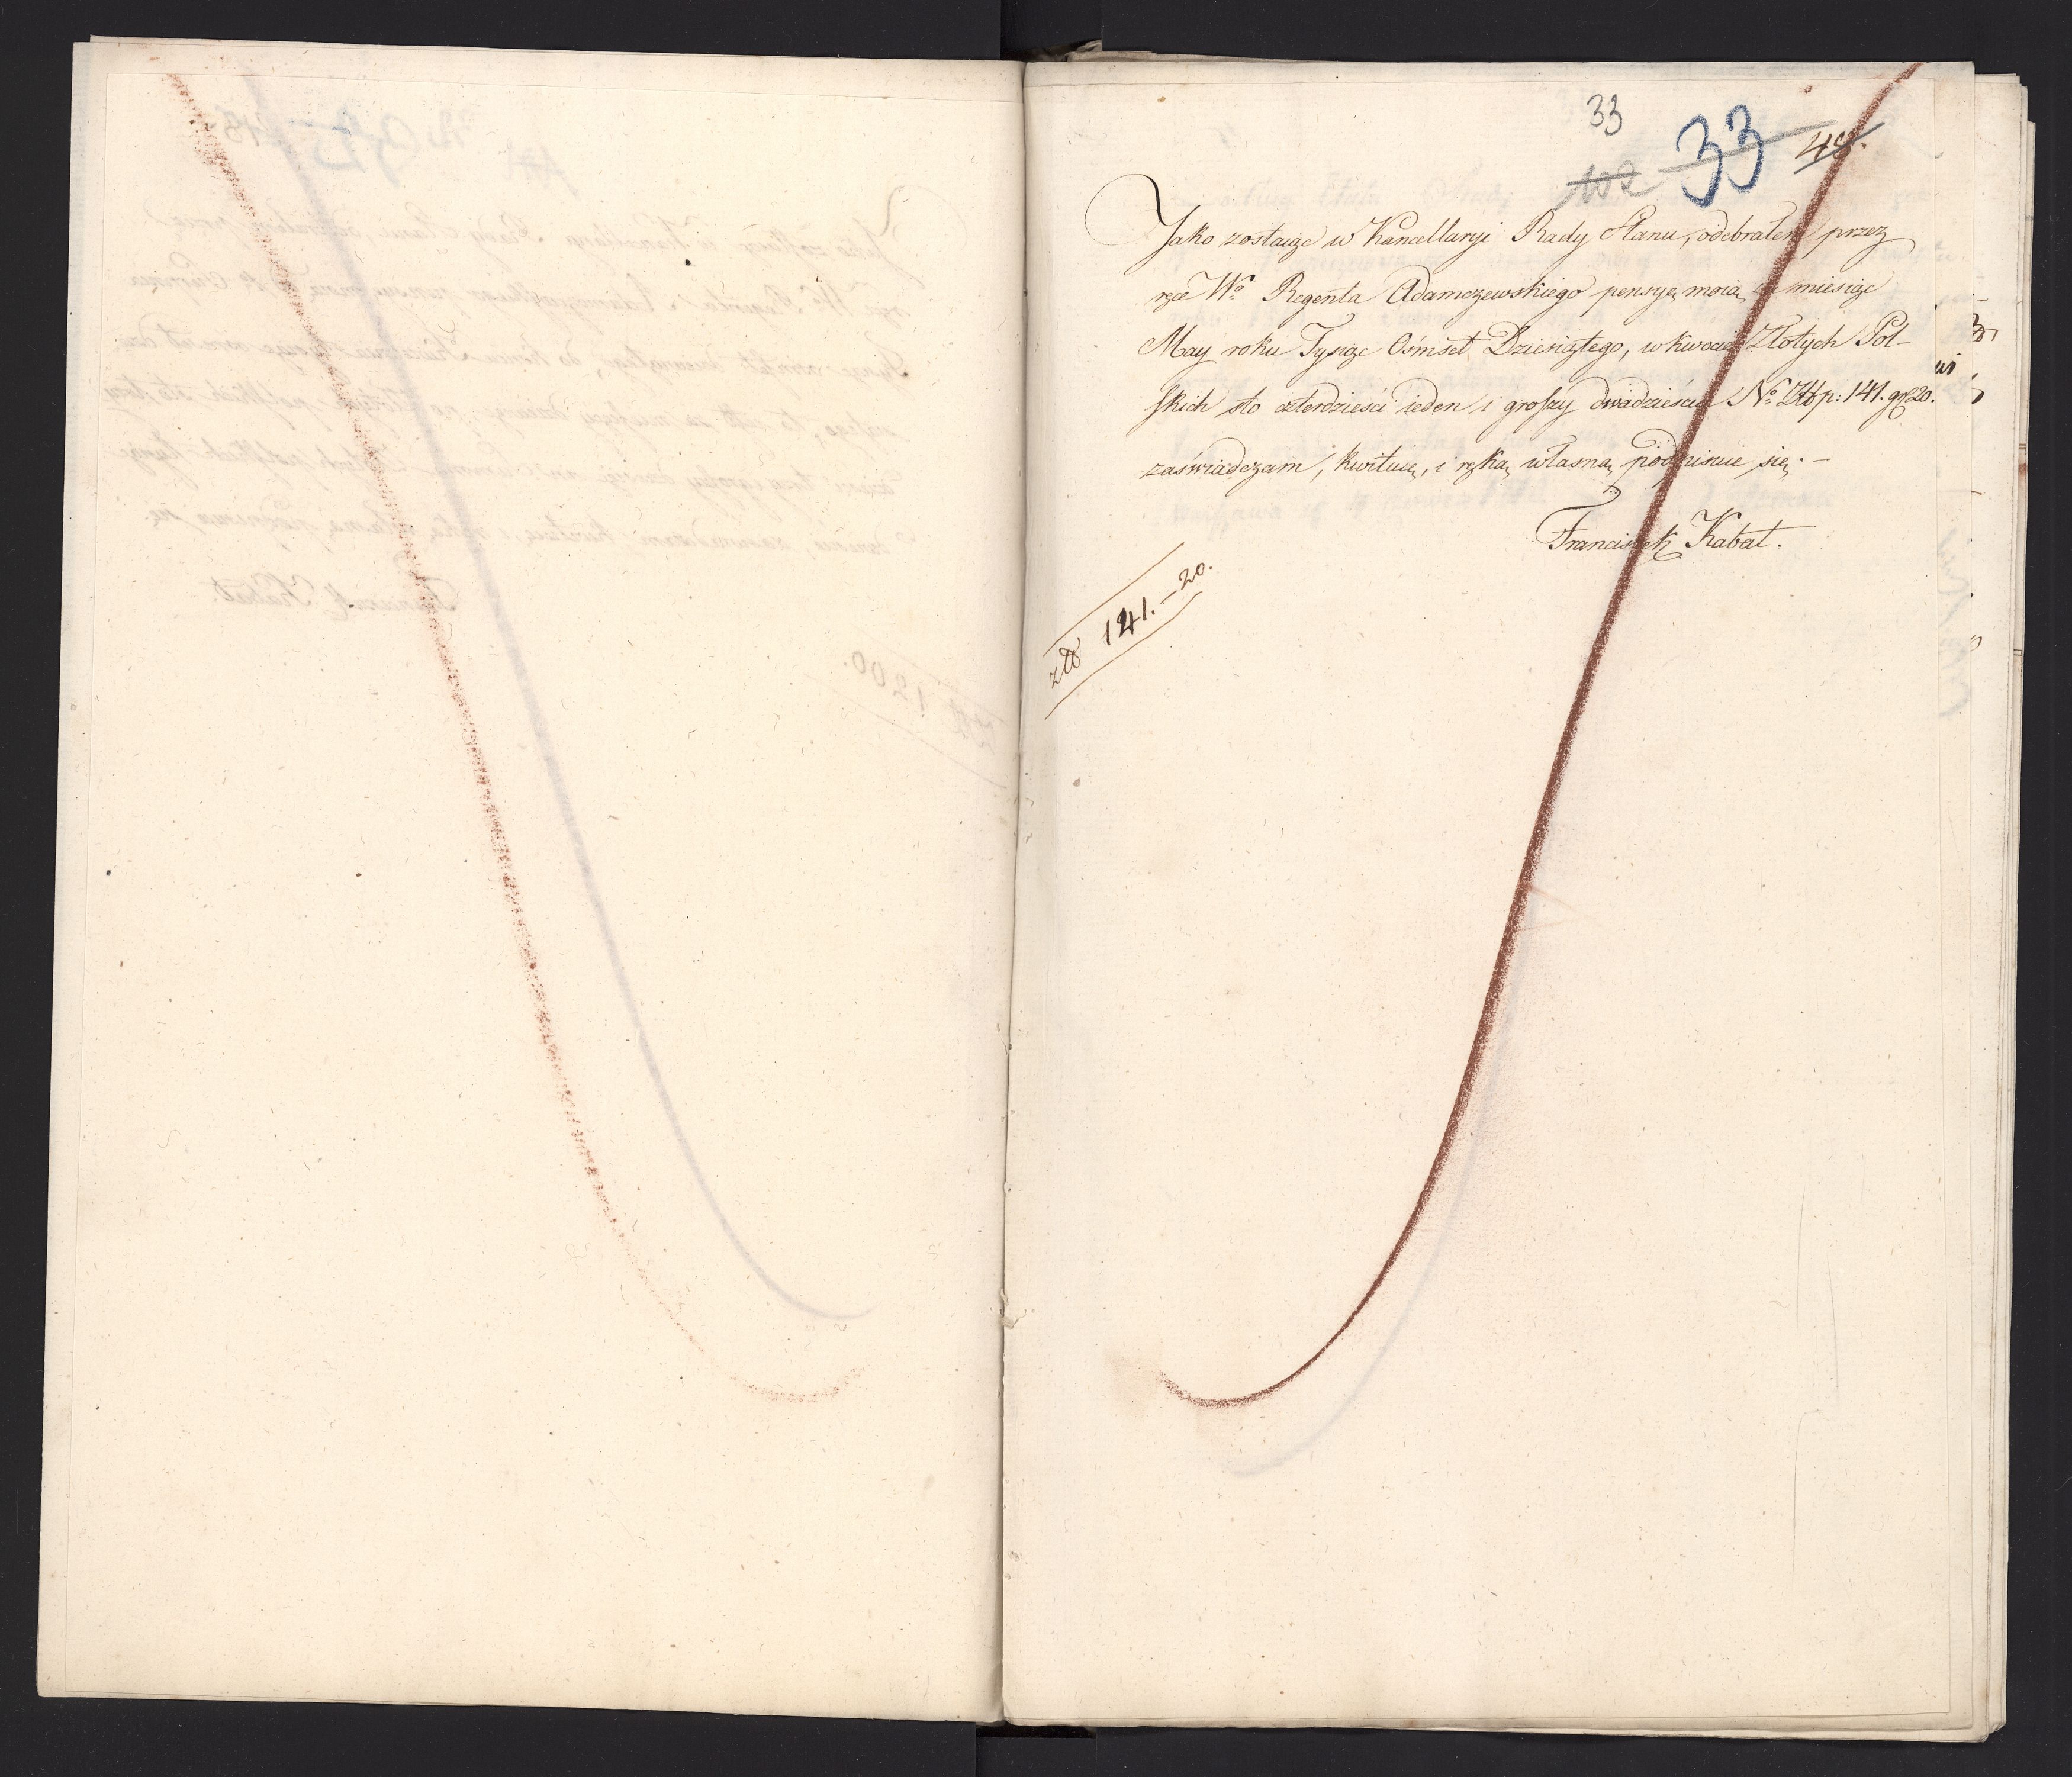 33
102 33 48.
Jako zostaiąc w Kancellaryi Rady Stanu, odebrałem przez
ręce Wo. Regenta Adamczewskiego pensyę moią za miesiąc
May roku Tysiąc Ośmset Dziesiątego, w kwocie Złotych Pol-
skich sto czterdzieści ieden i groszy dwadzieścia No. Złłp: 141. gr 20.
zaświadczam, kwituię, i ręką własną podpisuie się. –
Franciszek Kabat.
złł 141. – 20.